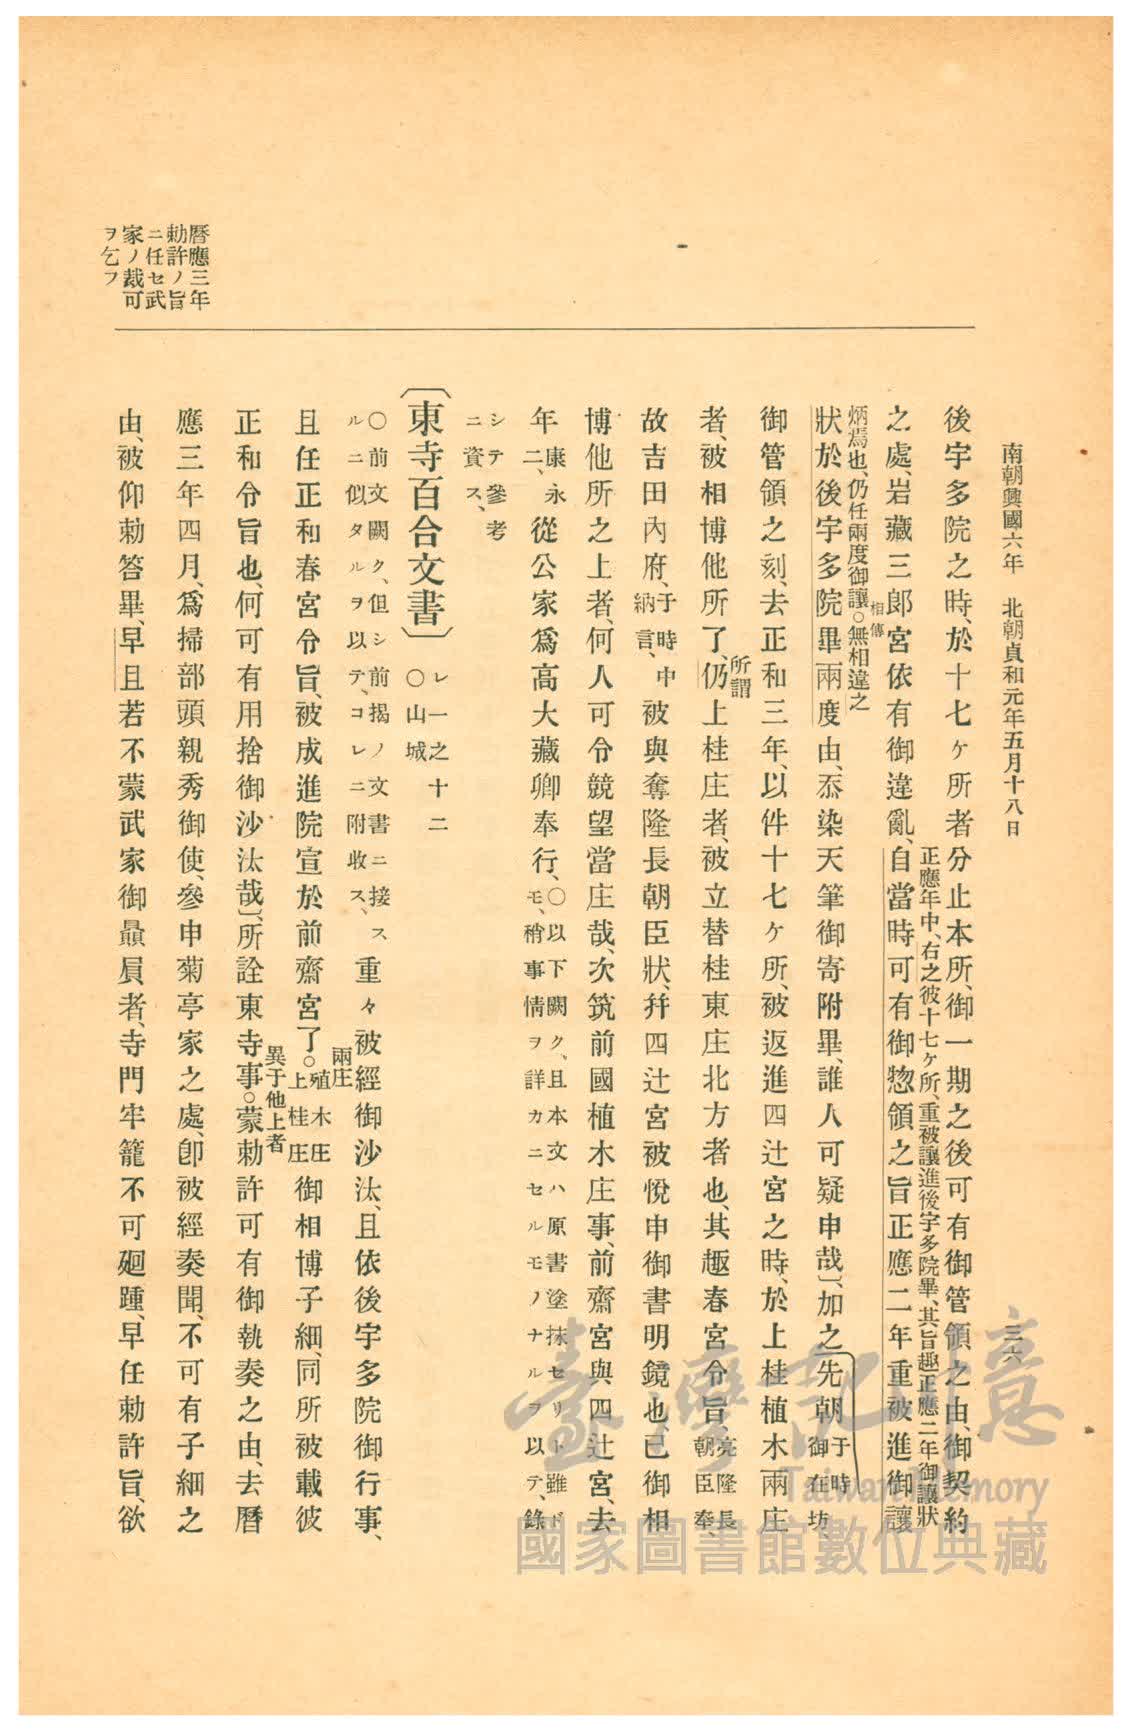 南朝興國六年　北朝貞和元年五月十八日
三六
後宇多院之時、於十七ヶ所者分止本所、御一期之後可有御管領之由、御契約
正應年中、右之彼十七ヶ所、重被讓進後宇多院畢、其旨趣正應二年御讓狀
之處、岩藏三郎宮依有御違亂、自當時可有御惣領之旨正應二年重被進御讓
相傳
炳焉也、仍任兩度御讓○無相違之
狀於後宇多院畢兩度由、忝染天筆御寄附畢、誰人可疑申哉〕、加之先朝于時御在坊、
御管領之刻、去正和三年、以件十七ヶ所、被返進四辻宮之時、於上桂植木兩庄
所謂
者、被相博他所了、仍上桂庄者、被立替桂東庄北方者也、其趣春宮令旨、亮隆長朝臣奉、
故吉田內府、于時中納言、被與奪隆長朝臣狀、幷四辻宮被悅申御書明鏡也、已御相
博他所之上者、何人可令競望當庄哉、次筑前國植木庄事、前齋宮與四辻宮、去
年康永二、從公家爲高大藏卿奉行、○以下闕ク、且本文ハ原書塗抹セリト雖ドモ、稍事情ヲ詳カニセルモノナルヲ以テ、錄
シテ參考ニ資ス、
〔東寺百合文書〕　レ一之十二○山城
○前文闕ク、但シ前揭ノ文書ニ接スルニ似タルヲ以テ、コレニ附收ス、重々被經御沙汰、且依後宇多院御行事、
兩庄
且任正和春宮令旨、被成進院宣於前齋宮了○殖木庄上桂庄御相博子細、同所被載彼
異于他上者
正和令旨也、何可有用捨御沙汰哉〕、所詮東寺事○蒙勅許可有御執奏之由、去曆
應三年四月、爲掃部頭親秀御使、參申菊亭家之處、卽被經奏聞、不可有子細之
由、被仰勅答畢、早且若不蒙武家御贔屓者、寺門牢籠不可廻踵、早任勅許旨、欲
曆應三年
勅許ノ旨
ニ任セ武
家ノ裁可
ヲ乞フ
臺灣記憶
Taiwan Memory
國家圖書館數位典藏